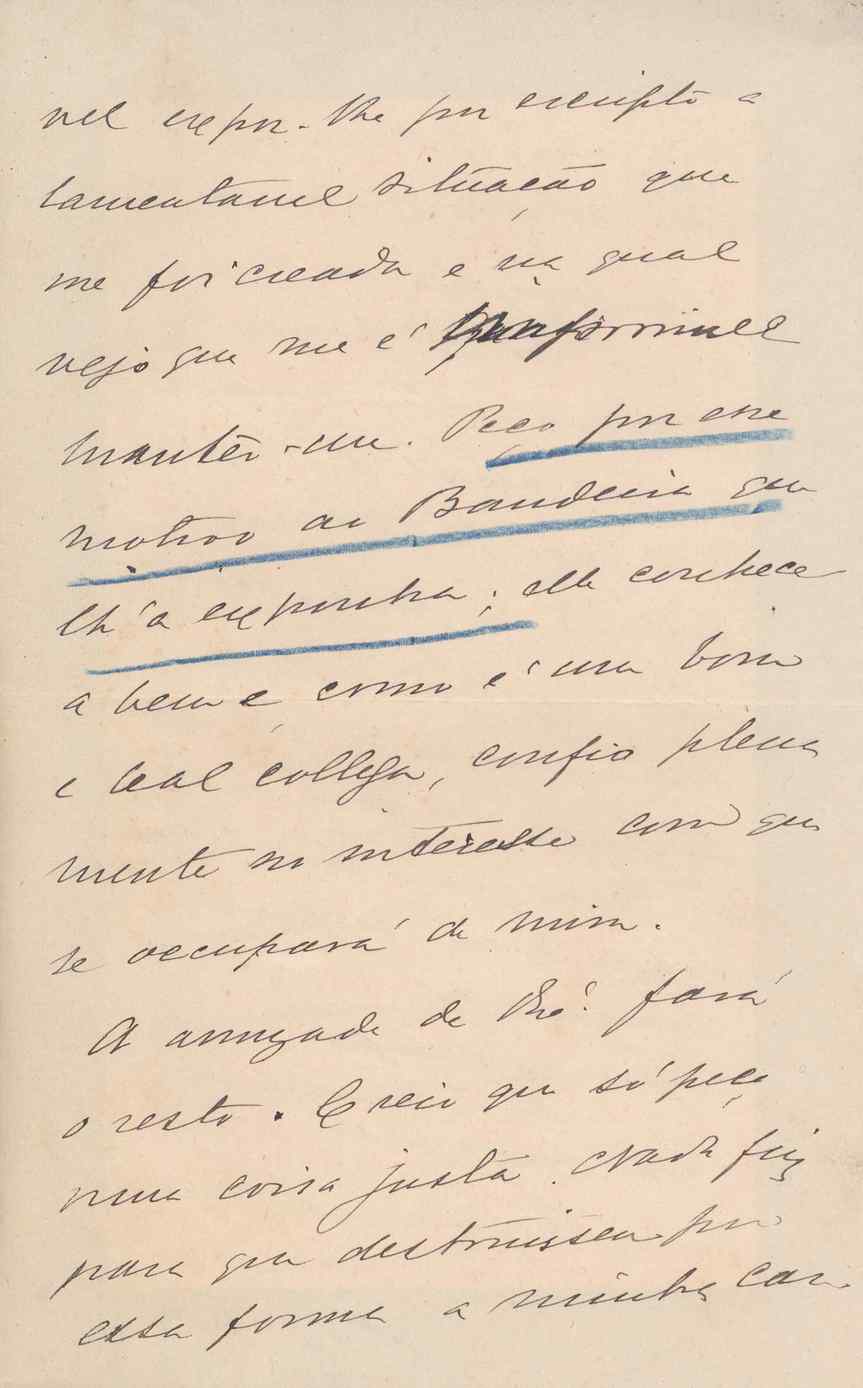 vel expor-lhe por escripto a
lamentavel situação que
me foi creada e na qual
vejo que me é impossivel
manter-me. Peço por esse
motivo ao Bandeira que
lh'a exponha; elle conhece
a bem e como é um bom
e leal collega, confio plena
mente no interesse com que
se occupará de mim.
A amizade de V. Ex.ª fará
o resto. Creio que só peço
uma coisa justa. Nada fiz
para que destruissem por
essa forma a minha car